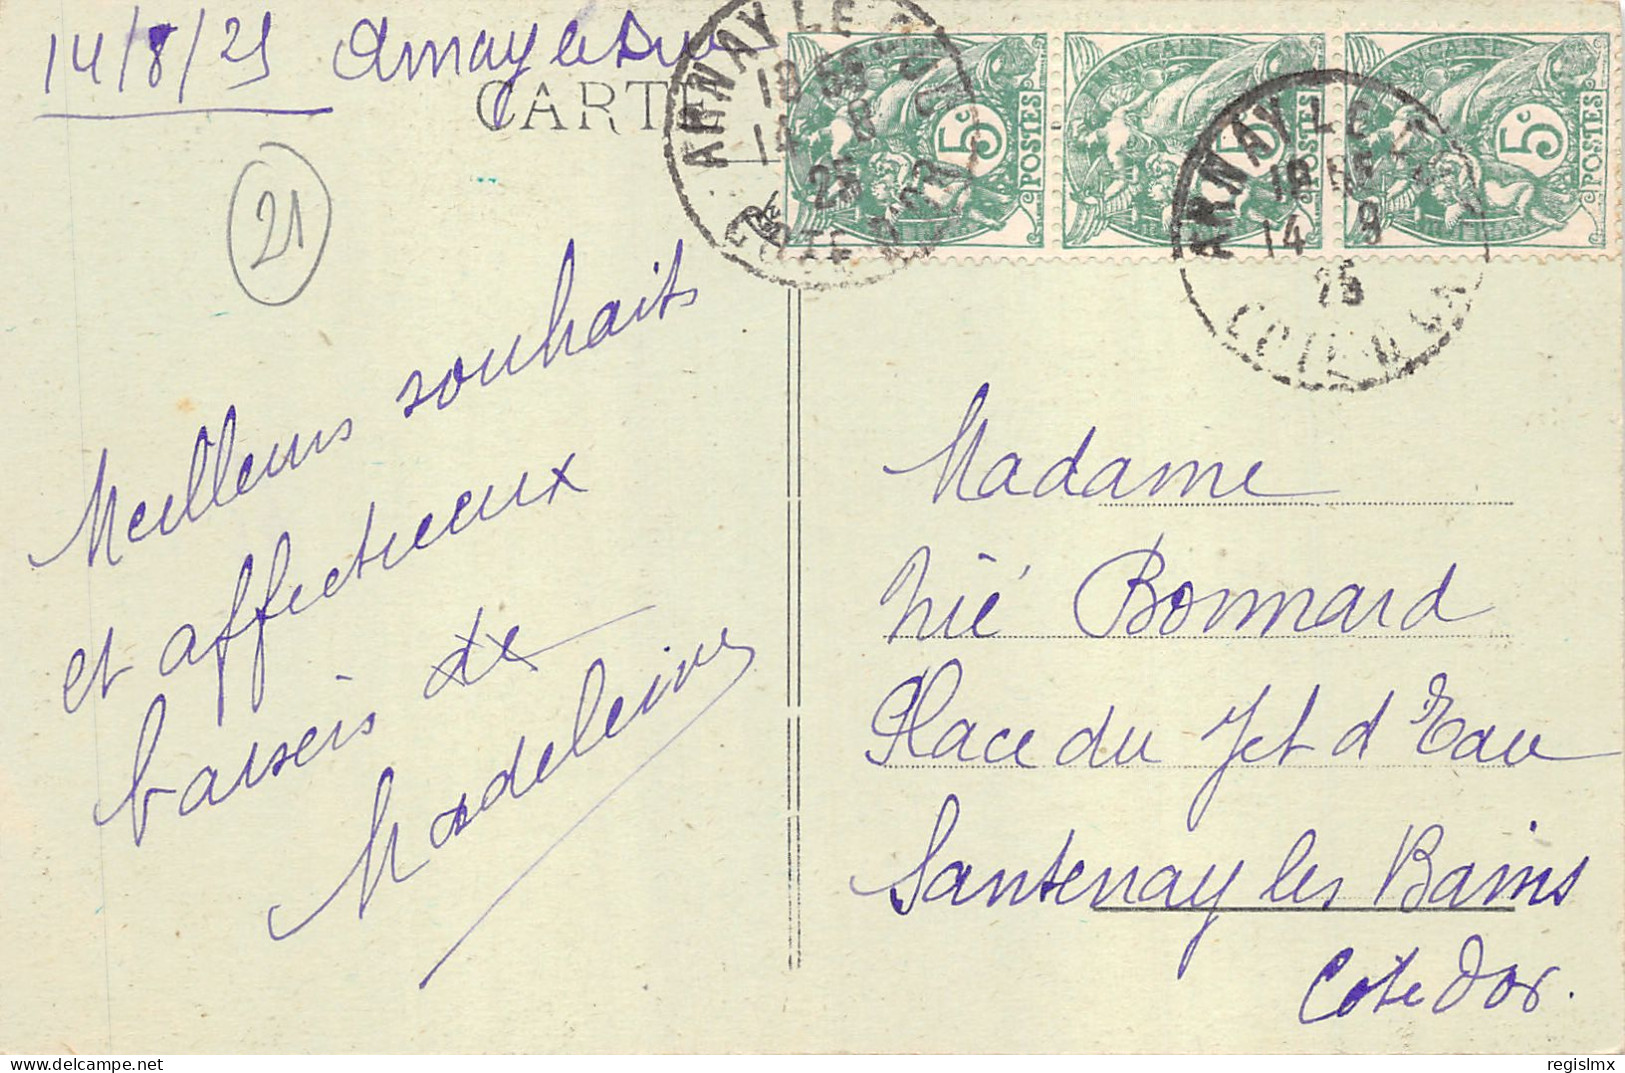 14/8/25 Arnay le Duc
CARTE
21
Meilleurs souhaits
et affectueux
baisers de
Madeleine
ARNAY LE DUC
18 35
14 8
25
COTE D'OR
FRANÇAISE
5c
POSTES
5c
POSTES
FRANÇAISE
5c
POSTES
ARNAY LE DUC
14 8
25
COTE D'OR
Madame
Bonnard
Place du Jet d'Eau
Santenay les Bains
Cote d'Or.
regislmx